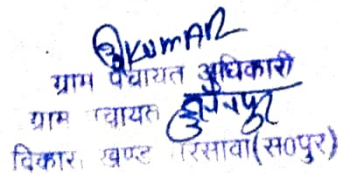 KUMAR
ग्राम पंचायत अधिकारी
ग्राम पंचायत
विकास खण्ड रिसावा(स०पुर)